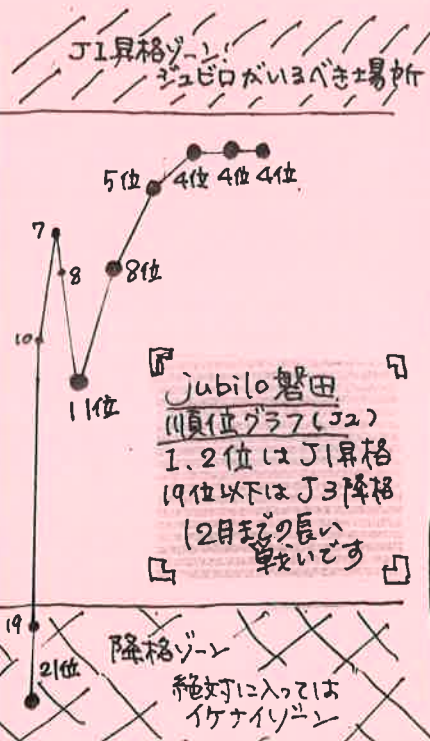 J1昇格ゾーン!
ジュビロがいるべき場所
5位
4位 4位 4位
7
8
8位
10
11位
jubilo磐田
順位グラフ(J2)
1.2位はJ1昇格
19位以下はJ3降格
12月までの長い
戦いです
19
降格ゾーン
21位
絶対に入っては
イケナイゾーン